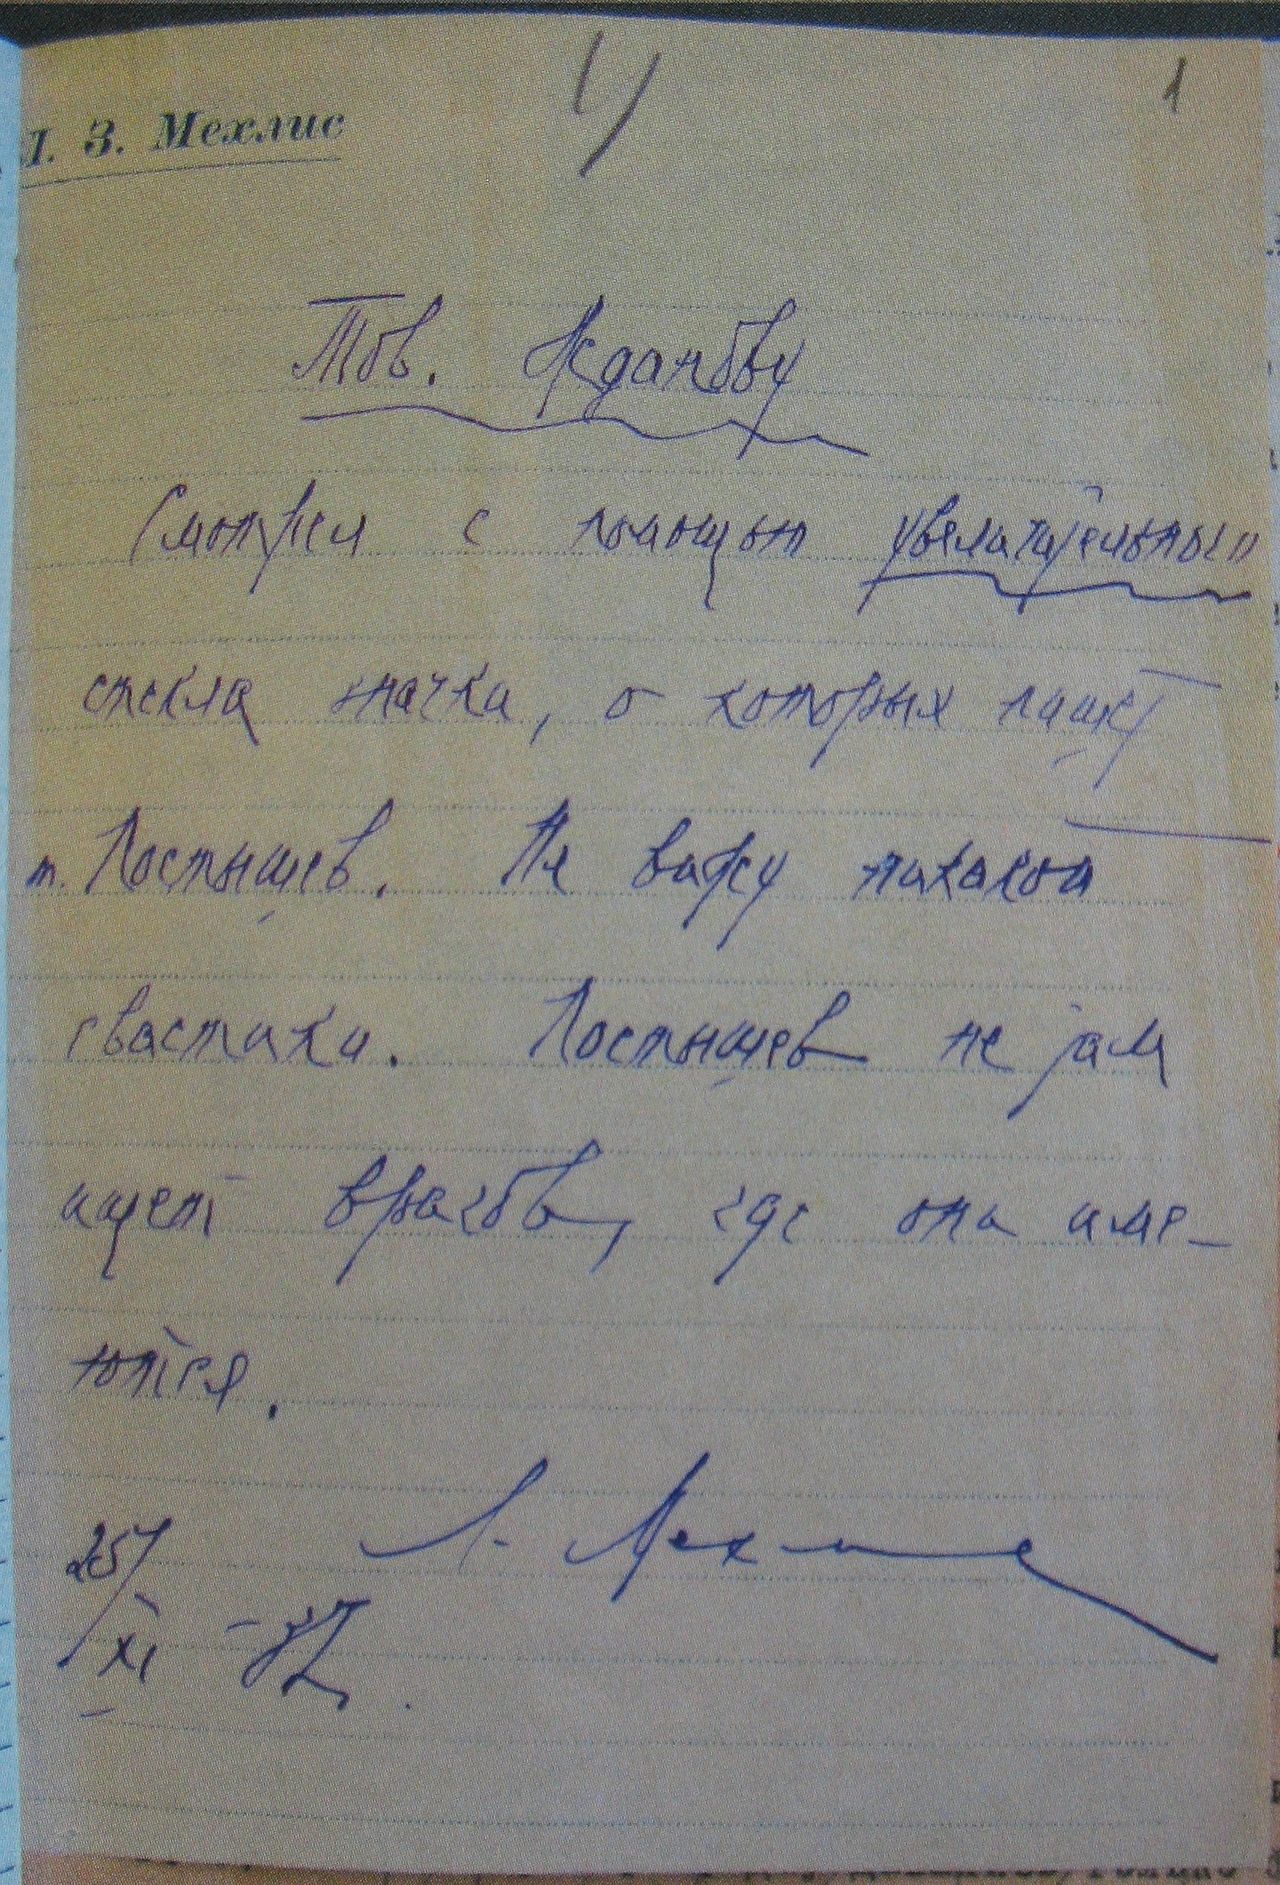 Л. З. Мехлис
1
Тов. Жданову
Смотрел с помощью увеличительных
стекла значки, о которых пишет
т. Постышев. Не вижу никакой
свастики. Постышев не там
ищет врагов, где они име-
ются.
Л. Мехлис
25/XI-37.